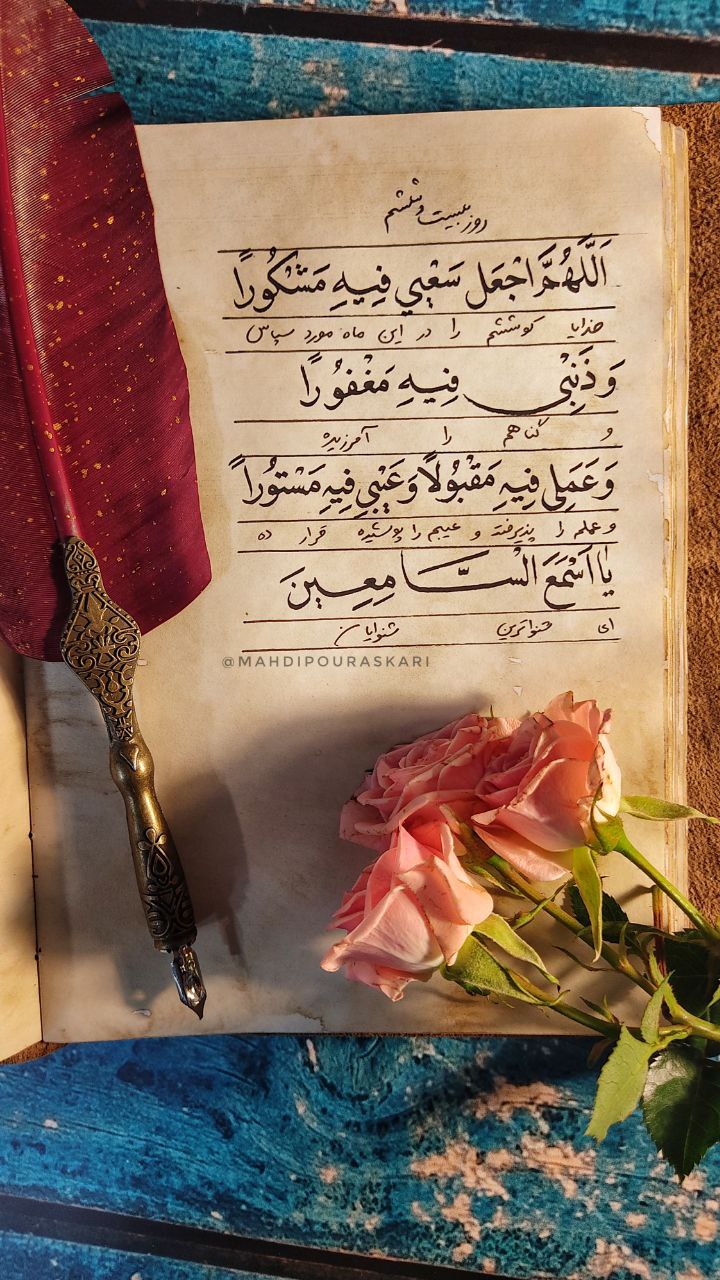 روز بیست و ششم
اَللّٰهُمَّ اجْعَل سَعْیي فِیهِ مَشْکُورًا
خدایا کوششم را در این ماه مورد سپاس
وَ ذَنْبي فِیهِ مَغْفُورًا
و گناهم را آمرزیده
وَ عَمَلِي فِیهِ مَقْبُولًا وَ عَیْبِي فِیهِ مَسْتُورًا
و عملم را پذیرفته و عیبم را پوشیده قرار ده
یٰا اَسْمَعَ الْسَّامِعِینَ
ای شنواترین شنوایان
@MAHDIPOURASKARI